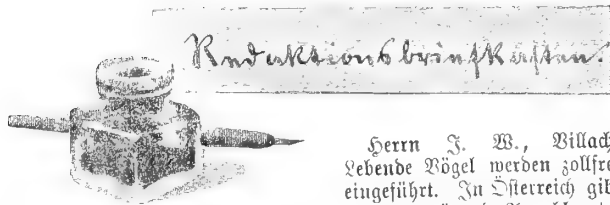 Redaktionsbriefkasten.
Herrn J. W., Villach
Lebende Vögel werden zollfre
eingeführt. In Österreich gib